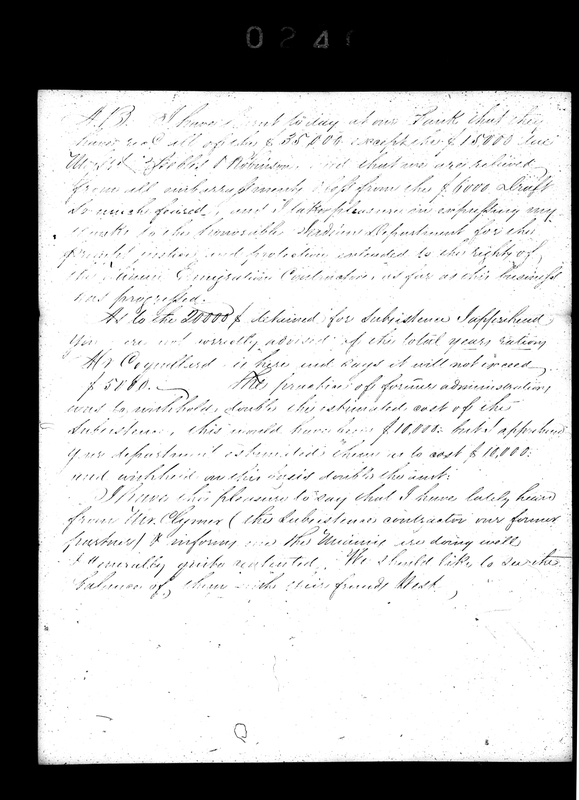 024
N.B. I have learnt today at our Bank that they
have recd all of the $35,000 except the $15000 due
Robinson and that we are relieved
from all embarrassments except from the $6000 Draft
so much feared, and I take pleasure in expressing my
thanks to the honorable Indian Department for the
prompt justice and protection extended to the rights of
the Miami Emigration Contractors, as far as this business
has progressed.
As to the 20000 $ detained for Subsistence I apprehend
you are not correctly advised of the total years rations
Mr Coquillard is here and says it will not exceed
$5180. The practice of former administrations
was to withhold double the estimated cost of the
Subsistence, this would have been $10,000: but I apprehend
your department estimated them as to cost $10,000:
and withheld on this basis double the amt:
I have the pleasure to say that I have lately heard
from Mr. Clymer (the Subsistence contractor our former
partner) & informs me the Miamis are doing well
& generally quite contented. We should like to see the
balance of them with their friends West